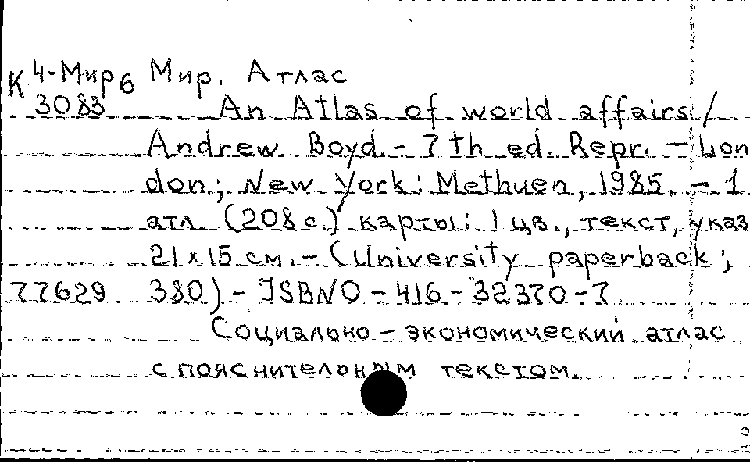 К 4-Мир6 Мир. Атлас
3083 An Atlas of world affairs /
Andrew Boyd. - 7 th ed. Repr. - Lon
don; New York: Methuen, 1985. - 1
атл. (208 с.) карты: 1 цв., текст, указ
21 x 15 см. - (University paperback;
77629 380) - ISBN 0 - 416 - 32370 - 7
Социально - экономический атлас
с пояснительным текстом.